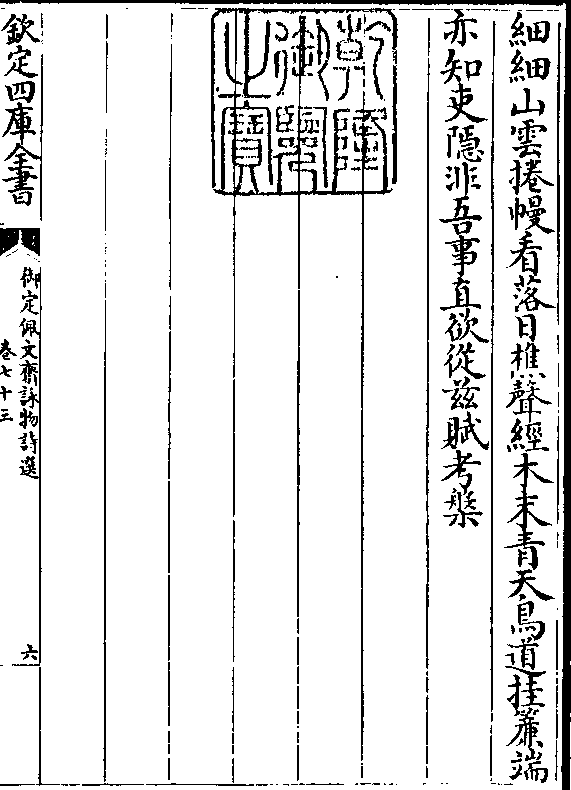 細細山雲捲幔看落日樵聲經木末青天鳥道挂簾端
亦知吏隱非吾事直欲從茲賦考槃
乾隆
御覽
之寶
欽定四庫全書
御定佩文齋詠物詩選
卷七十三
六